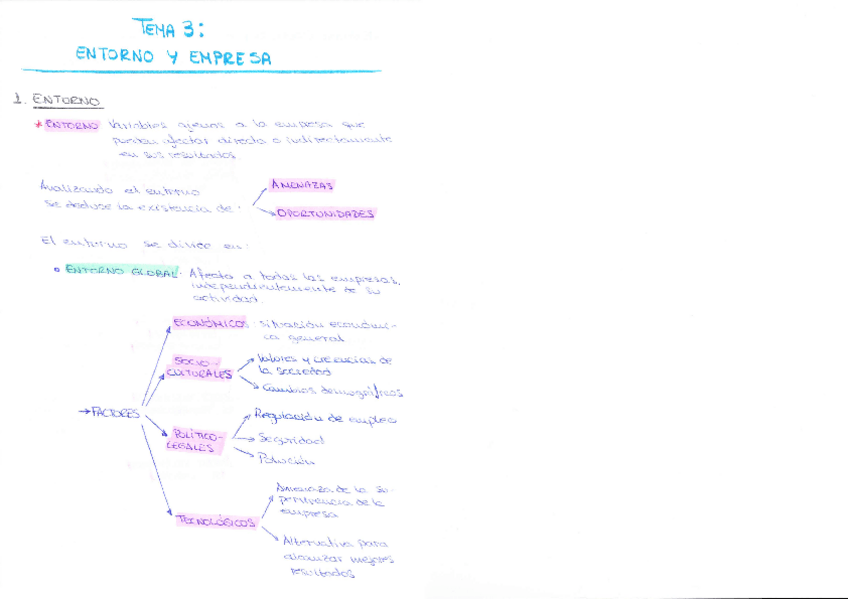 TEMA 3:
ENTORNO Y EMPRESA
1. ENTORNO
* ENTORNO Variables ajenas a la empresa que
pueden afectar directa o indirectamente
en sus resultados.
Analizando el entorno
se deduce la existencia de:
AMENAZAS
OPORTUNIDADES
El entorno se divide en:
ENTORNO GLOBAL: Afecta a todas las empresas,
independientemente de su
actividad
→ FACTORES
ECONÓMICOS: situación económi-
ca general
SOCIO-
CULTURALES
Valores y creencias de
la sociedad
Cambios demográficos
POLÍTICO-
LEGALES
Regulación de empleo
Seguridad
Polución
TECNOLÓGICOS
Amenaza de la su-
pervivencia de la
empresa
Alternativa para
alcanzar mejores
resultados